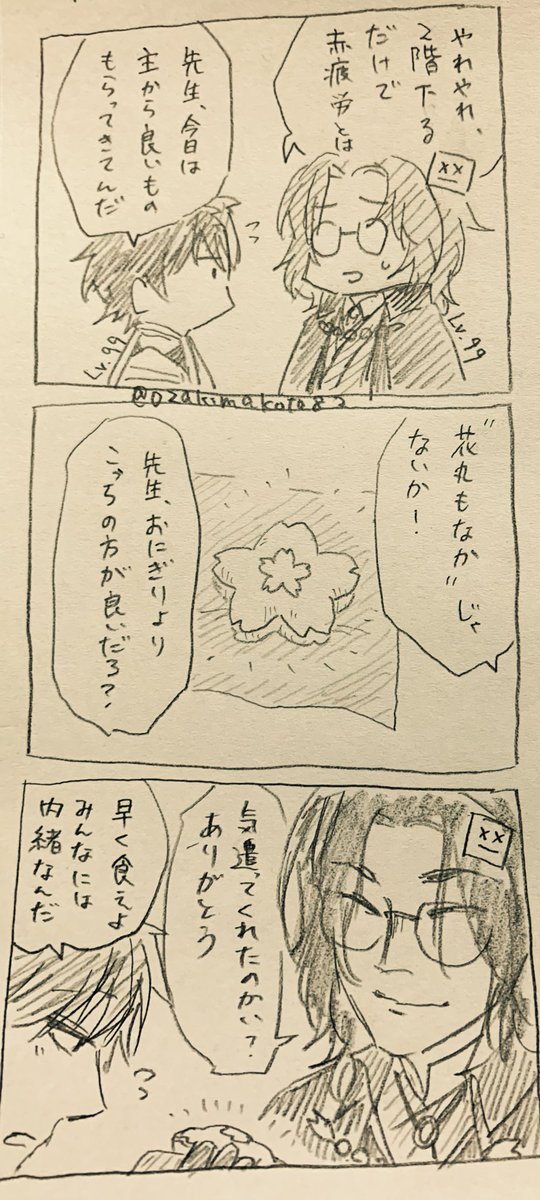 やれやれ、
2階下る
だけで
赤疲労とは
××
先生、今日は
主から良いもの
もらってきてんだ
Lv.99
Lv.99
@ozakimakota82
"花丸もなか"じゃ
ないか!
先生、おにぎりより
こっちの方が良いだろ?
××
気遣ってくれたのかい?
ありがとう
早く食えよ
みんなには
内緒なんだ